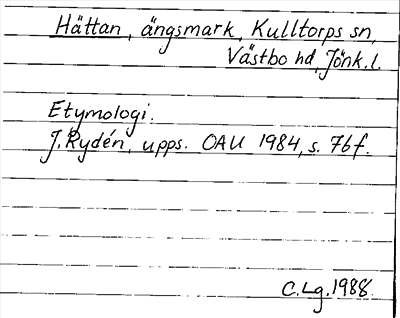 Hättan, ängsmark, Kulltorps sn,
Västbo hd, Jönk. l.
Etymologi.
J. Rydén, upps. OAU 1984, s. 76f.
C.Lg. 1988.